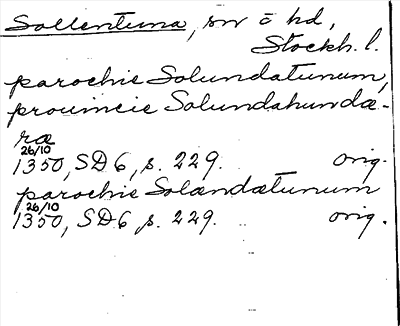 Sollentuna, sn o hd,
Stockh. l.
parochie Solundatunum,
prouincie Solundahundæ-
ræ
26/10
1350, SD 6, s. 229. orig.
parochie Solændætunum
26/10
1350, SD 6, s. 229. orig.